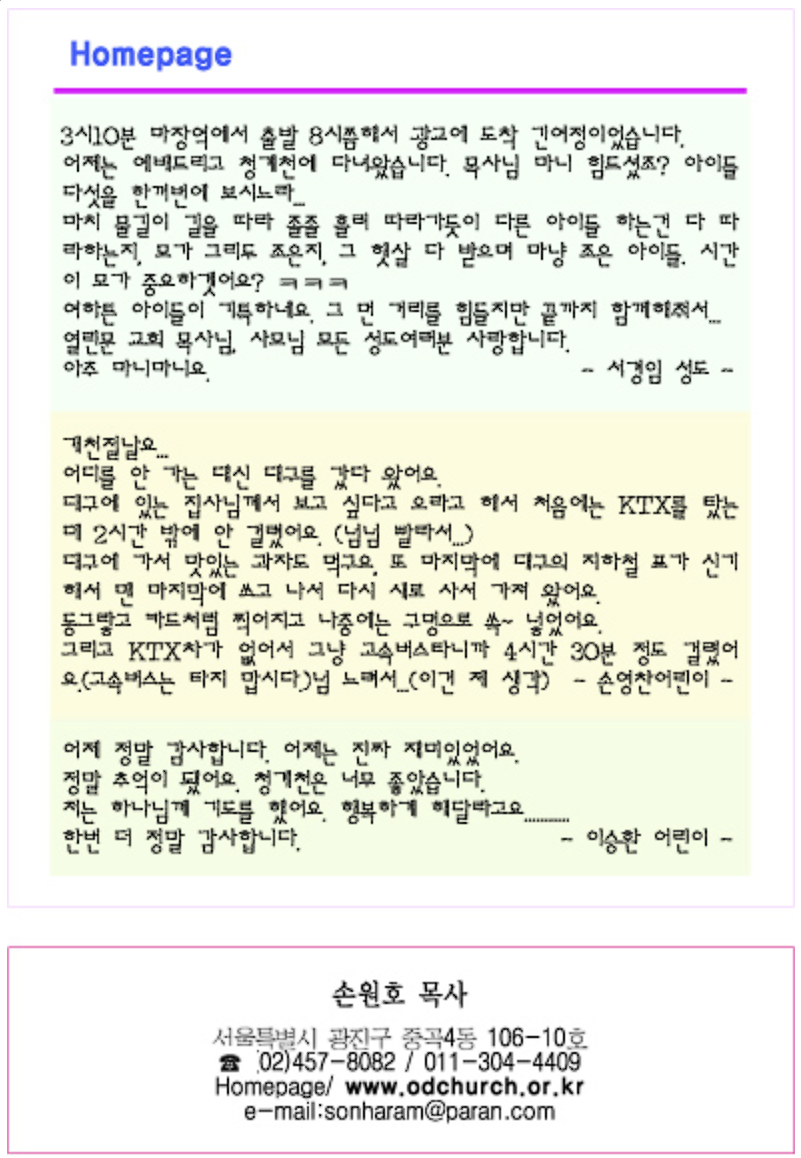 Homepage
3시10분 마장역에서 출발 8시쯤해서 광고에 도착 긴여정이었습니다.
어제는 예배드리고 청계천에 다녀왔습니다. 목사님 마니 힘드셨죠? 아이들
다섯을 한꺼번에 보시느라...
마치 물길이 길을 따라 졸졸 흘러 따라가듯이 다른 아이들 하는건 다 따
라하는지, 모가 그리두 조은지, 그 햇살 다 받으며 마냥 조은 아이들. 시간
이 모가 중요하겟어요? ㅋㅋㅋ
여하튼 아이들이 기특하네요. 그 먼 거리를 힘들지만 끝까지 함께해줘서...
열린문 교회 목사님, 사모님 모든 성도여러분 사랑합니다.
아주 마니마니요. ~ 서경임 성도 ~
개천절날요...
어디를 안 가는 대신 대구를 갔다 왔어요.
대구에 있는 집사님께서 보고 싶다고 오라고 해서 처음에는 KTX를 탔는
데 2시간 밖에 안 걸렸어요. (넘넘 빨라서...)
대구에 가서 맛있는 과자도 먹구요. 또 마지막에 대구의 지하철 표가 신기
해서 맨 마지막에 쓰고 나서 다시 새로 사서 가져 왔어요.
동그랗고 카드처럼 찍어지고 나중에는 구멍으로 쏙~ 넣었어요.
그리고 KTX차가 없어서 그냥 고속버스타니까 4시간 30분 정도 걸렸어
요.(고속버스는 타지 맙시다.)넘 느려서...(이건 제 생각) ~ 손영찬어린이 ~
어제 정말 감사합니다. 어제는 진짜 재미있었어요.
정말 추억이 됐어요. 청계천은 너무 좋았습니다.
저는 하나님께 기도를 했어요. 행복하게 해달라고요...........
한번 더 정말 감사합니다. ~ 이승환 어린이 ~
손원호 목사
서울특별시 광진구 중곡4동 106-10호
☎ 02)457-8082 / 011-304-4409
Homepage/ www.odchurch.or.kr
e-mail:sonharam@paran.com